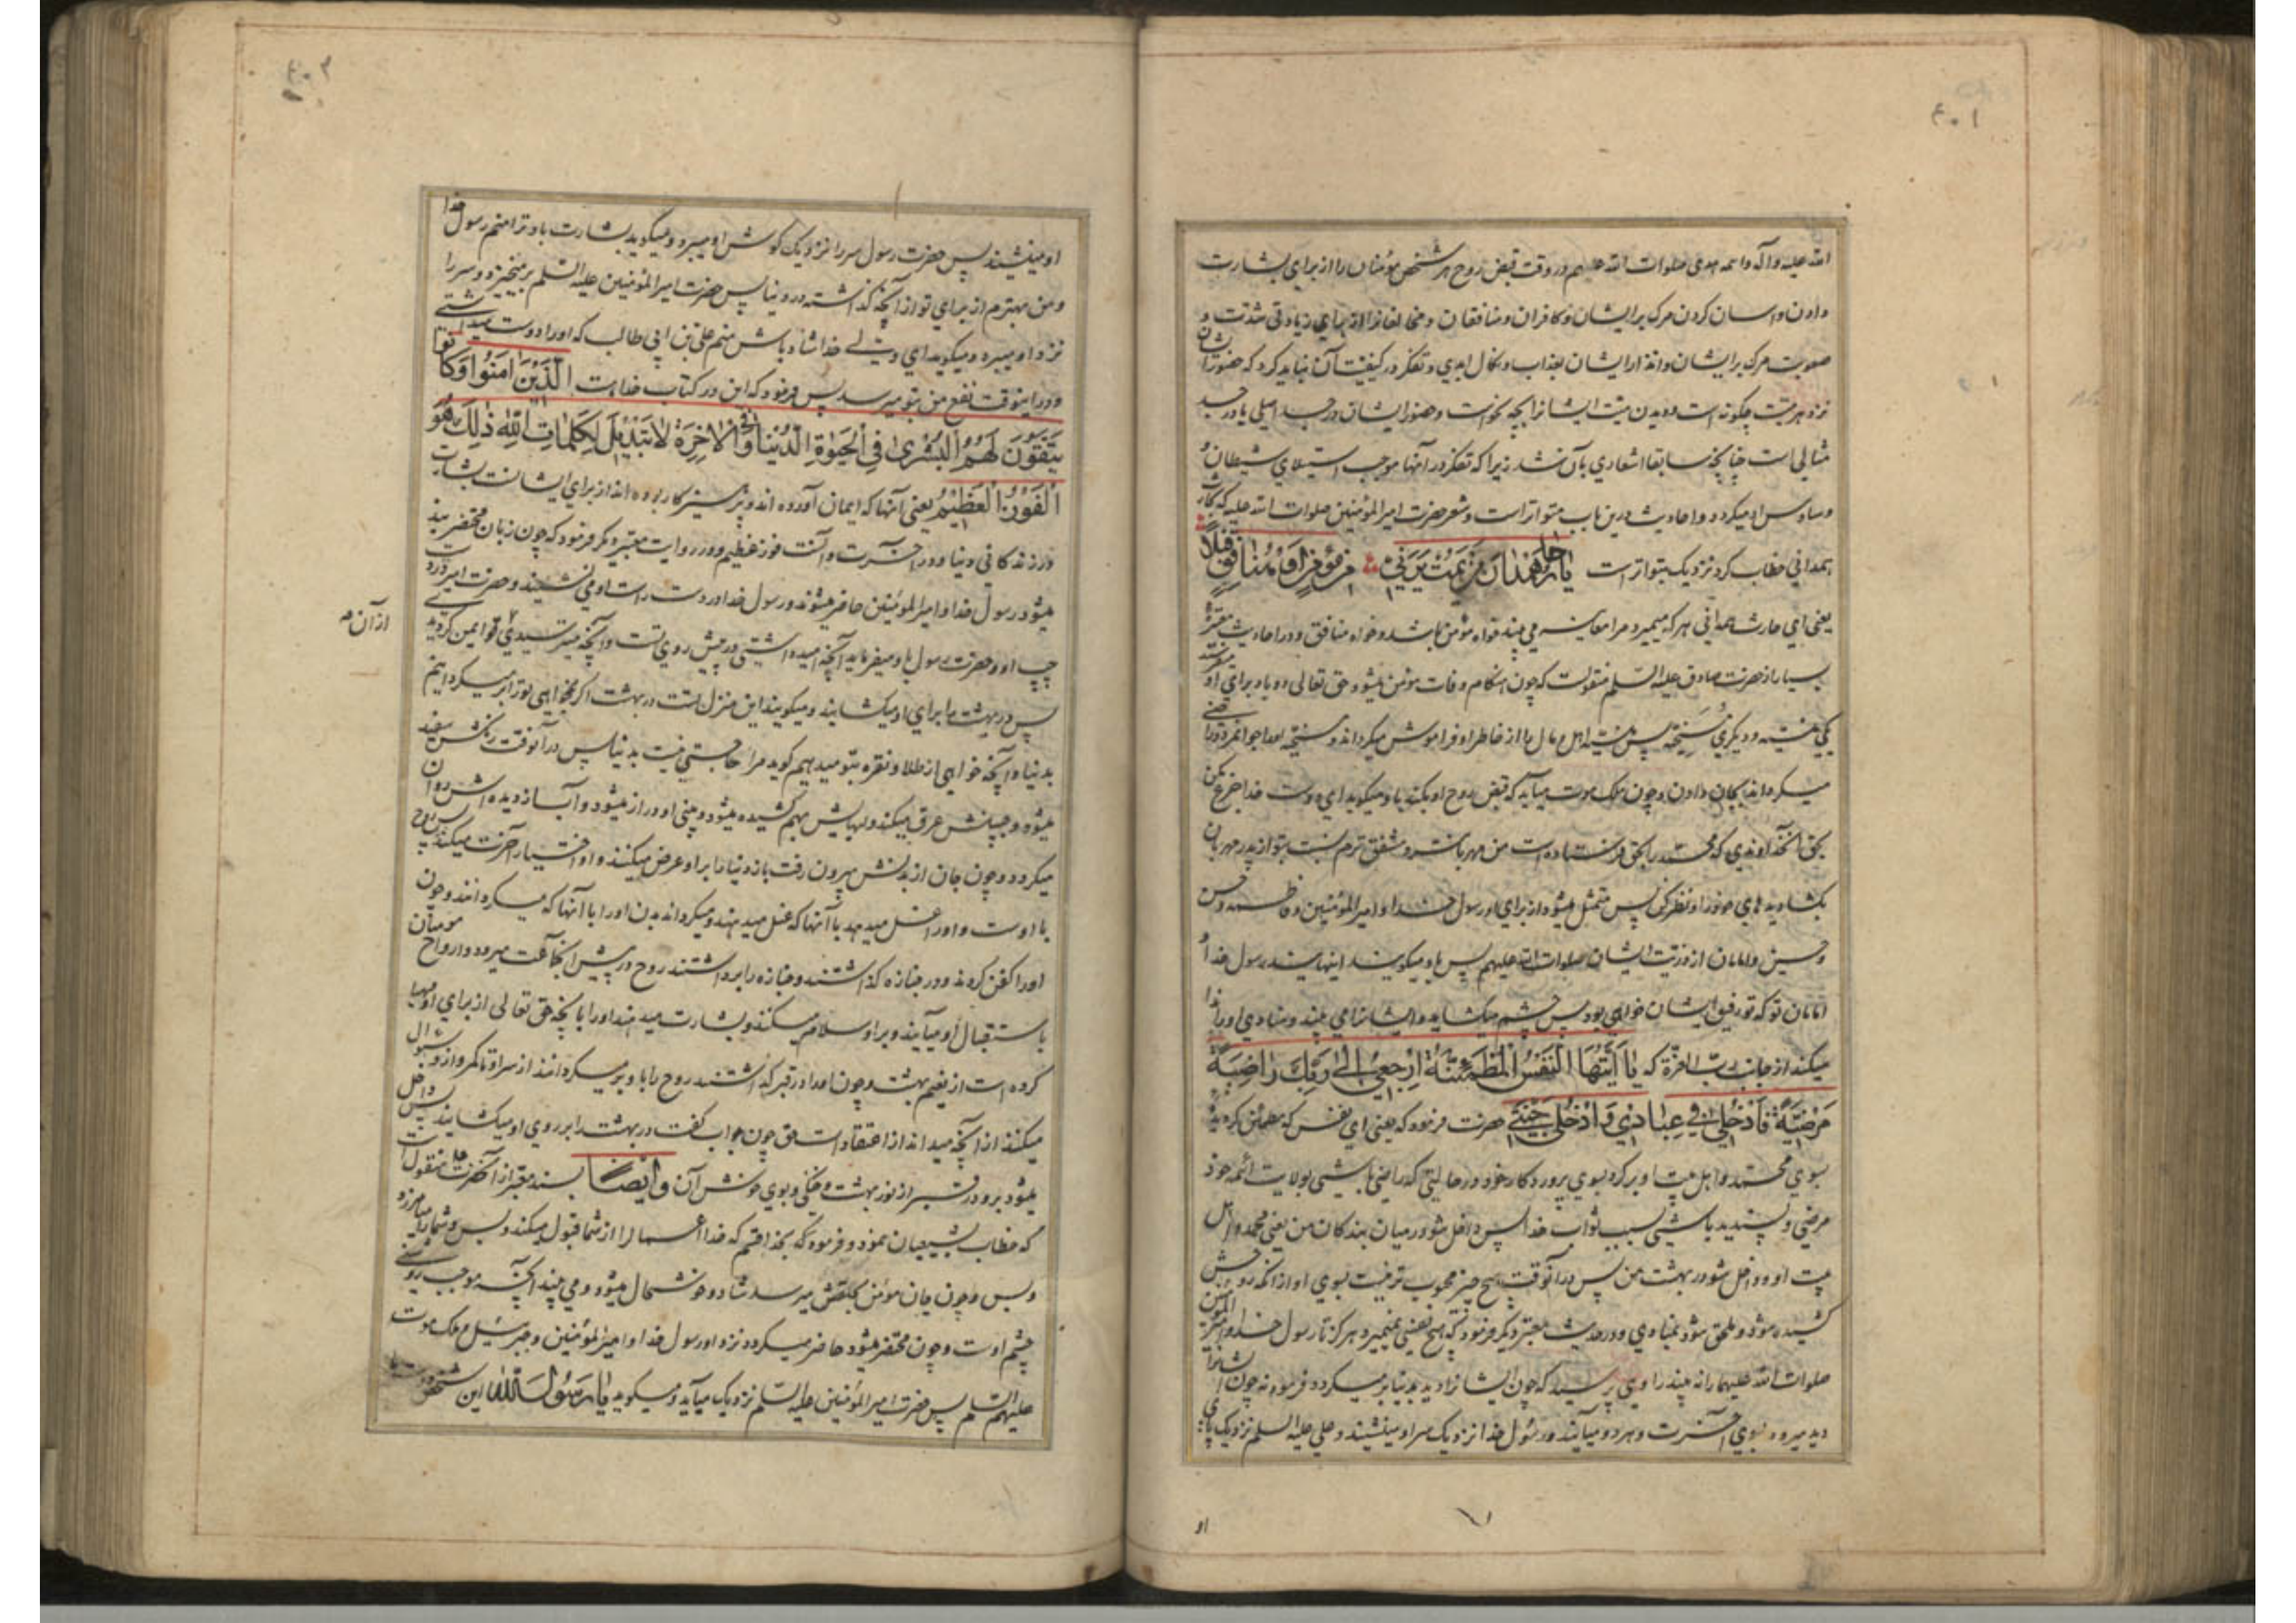 ۴۰۱
الله علیه وآله وائمه هدی صلوات الله علیهم در وقت قبض روح هر شخص مؤمنان را از برای بشارت
دادن و اسان کردن مرک بر ایشان و کافران و منافقان و مخالفانرا از برای زیادتی شدت و
صعوبت مرک بر ایشان و انذار ایشان بعذاب و نکال ابدی و تفکر در کیفیت آن نباید کرد که حضور ایشان
نزد هر میت چکونه است و دیدن میت ایشانرا بچه نحو است و حضور ایشان در جسد اصلی یا در جسد
مثالی است چنانچه سابقا اشعاری بآن شد زیرا که تفکر در آنها موجب استیلای شیطان و
وساوس او میکردد و احادیث درین باب متواتر است و شعر حضرت امیر المؤمنین صلوات الله علیه که بحارث
همدانی خطاب کرد نزدیک بتواتر است یا حار همدان من یمت یرنی من مؤمن او منافق قبلا
یعنی ای حارث همدانی هر که میمیرد مرا معاینه می بیند خواه مؤمن باشد و خواه منافق و در احادیث معتبره
بسیار از حضرت صادق علیه السلم منقولست که چون هنکام وفات مومن میشود حق تعالی دو باد برای او میفرستد
یکی منسیه و دیکری مسخیه پس منسیه اهل و مال را از خاطر او فراموش میکرداند و مسخیه او را جوانمرد و راضی
میکرداند بجان دادن و چون ملک موت میآید که قبض روح او بکند باو میکوید ای دوست خدا جزع مکن
بحق آنخداوندی که محمد را بحق فرستاده است من مهربانتر و مشفق ترم نسبت بتو از پدر مهربان
بکشا دیدهای خود را و نظر کن پس متمثل میشود از برای او رسول خدا و امیر المؤمنین و فاطمه و حسن
و حسین و امامان از ذریت ایشان صلوات الله علیهم پس باو میکویند اینهایند رسول خدا و
امامان تو که تو رفیق ایشان خواهی بود پس چشم میکشاید و ایشانرا می بیند و منادی او را ندا
میکند از جانب رب العزة که یا ایتها النفس المطمئنة ارجعی الی ربک راضیة
مرضیة فادخلی فی عبادی وادخلی جنتی حضرت فرمود که یعنی ای نفس که مطمئن کردیدی
بسوی محمد و اهل بیت او برکرد بسوی پروردکار خود در حالتی که راضی باشی بولایت ائمه خود
مرضی و پسندیده باشی بسبب ثواب خدا پس داخل شو در میان بندکان من یعنی محمد و اهل
بیت او و داخل شو در بهشت من پس در آنوقت هیچ چیز محبوب تر نیست بسوی او از انکه روحش
کشیده شود و ملحق شود بمنادی و در حدیث معتبر دیکر فرمود که هیچ نفسی نمیمیرد هرکز تا رسول خدا و امیر المؤمنین
صلوات الله علیهما را نه بیند راوی پرسید که چون ایشانرا دید بدنیا بر میکردد فرمود نه چون ایشانرا
دید میرود بسوی آخرت و هر دو میآیند و رسول خدا نزدیک سر او مینشیند و علی علیه السلم نزدیک پای
او
۴۰۲
او مینشیند پس حضرت رسول سر را نزدیک کوش او میبرد و میکوید بشارت باد ترا منم رسول خدا
و من بهترم از برای تو از آنچه کذاشته در دنیا پس حضرت امیر المؤمنین علیه السلم بر میخیزد و سر را
نزد او میبرد و میکوید ای ولی خدا شاد باش منم علی بن ابی طالب که او را دوست میداشتی
و در اینوقت نفع من بتو میرسد پس فرمود که این در کتاب خداست الذین امنوا وکانوا
یتقون لهم البشری فی الحیوة الدنیا وفی الآخرة لا تبدیل لکلمات الله ذلک هو
الفوز العظیم یعنی آنها که ایمان آورده اند و پرهیزکار بوده اند از برای ایشانست بشارت
در زندکانی دنیا و در آخرت و آنست فوز عظیم و در روایت معتبر دیکر فرمود که چون زبان محتضر بند
میشود رسول خدا و امیر المؤمنین حاضر میشوند و رسول خدا در دست راست او می نشیند و حضرت امیر در دست
چپ او و حضرت رسول باو میفرماید آنچه امید داشتی در پیش روی تست و آنچه میترسیدی از آن ایمن کردیدی
از آن
پس دری از بهشت را برای او میکشایند و میکویند این منزل تست در بهشت اکر میخواهی تو را بر میکردانیم
بدنیا و آنچه خواهی از طلا و نقره بتو میدهیم کوید مرا حاجتی نیست بدنیا پس در آنوقت رنکش سفید
میشود و جبینش عرق میکند و لبهایش بهم کشیده میشود و بینی او دراز میشود و آب از دیده اش روان
میکردد و چون جان از بدنش بیرون رفت باز دنیا را بر او عرض میکنند و او اختیار آخرت میکند پس روح
با اوست و او را غسل میدهد با آنها که غسل میدهند و میکرداند بدن او را با آنها که میکردانند و چون
او را کفن کردند و در جنازه کذاشتند و جنازه را برداشتند روح در پیش آنجماعت میرود و ارواح مومنان
باستقبال او میآیند و بر او سلام میکنند و بشارت میدهند او را بانچه حق تعالی از برای او مهیا
کرده است از نعیم بهشت و چون او را در قبر کذاشتند روح را باو بر میکردانند از سر او تا کمر و از او سؤال
میکنند از آنچه میداند از اعتقادات حق چون جواب کفت در بهشت را بر روی او میکشایند پس داخل
میشود برو در قبر از نور بهشت و خنکی و بوی خوش آن وایضا بسند معتبر از آنحضرت منقول است
که خطاب بشیعیان نمود و فرمود که بخدا قسم که خدا اعمال را از شما قبول میکند و بس و شما را میامرزد
و بس و چون جان مؤمن بحلقش میرسد شاد و خوشحال میشود و می بیند آنچه موجب روشنی
چشم اوست و چون محتضر میشود حاضر میکردد نزد او رسول خدا و امیر المؤمنین و جبرئیل و ملک موت
علیهم السلم پس حضرت امیر المؤمنین علیه السلم نزدیک میآید و میکوید یا رسول الله این شخص